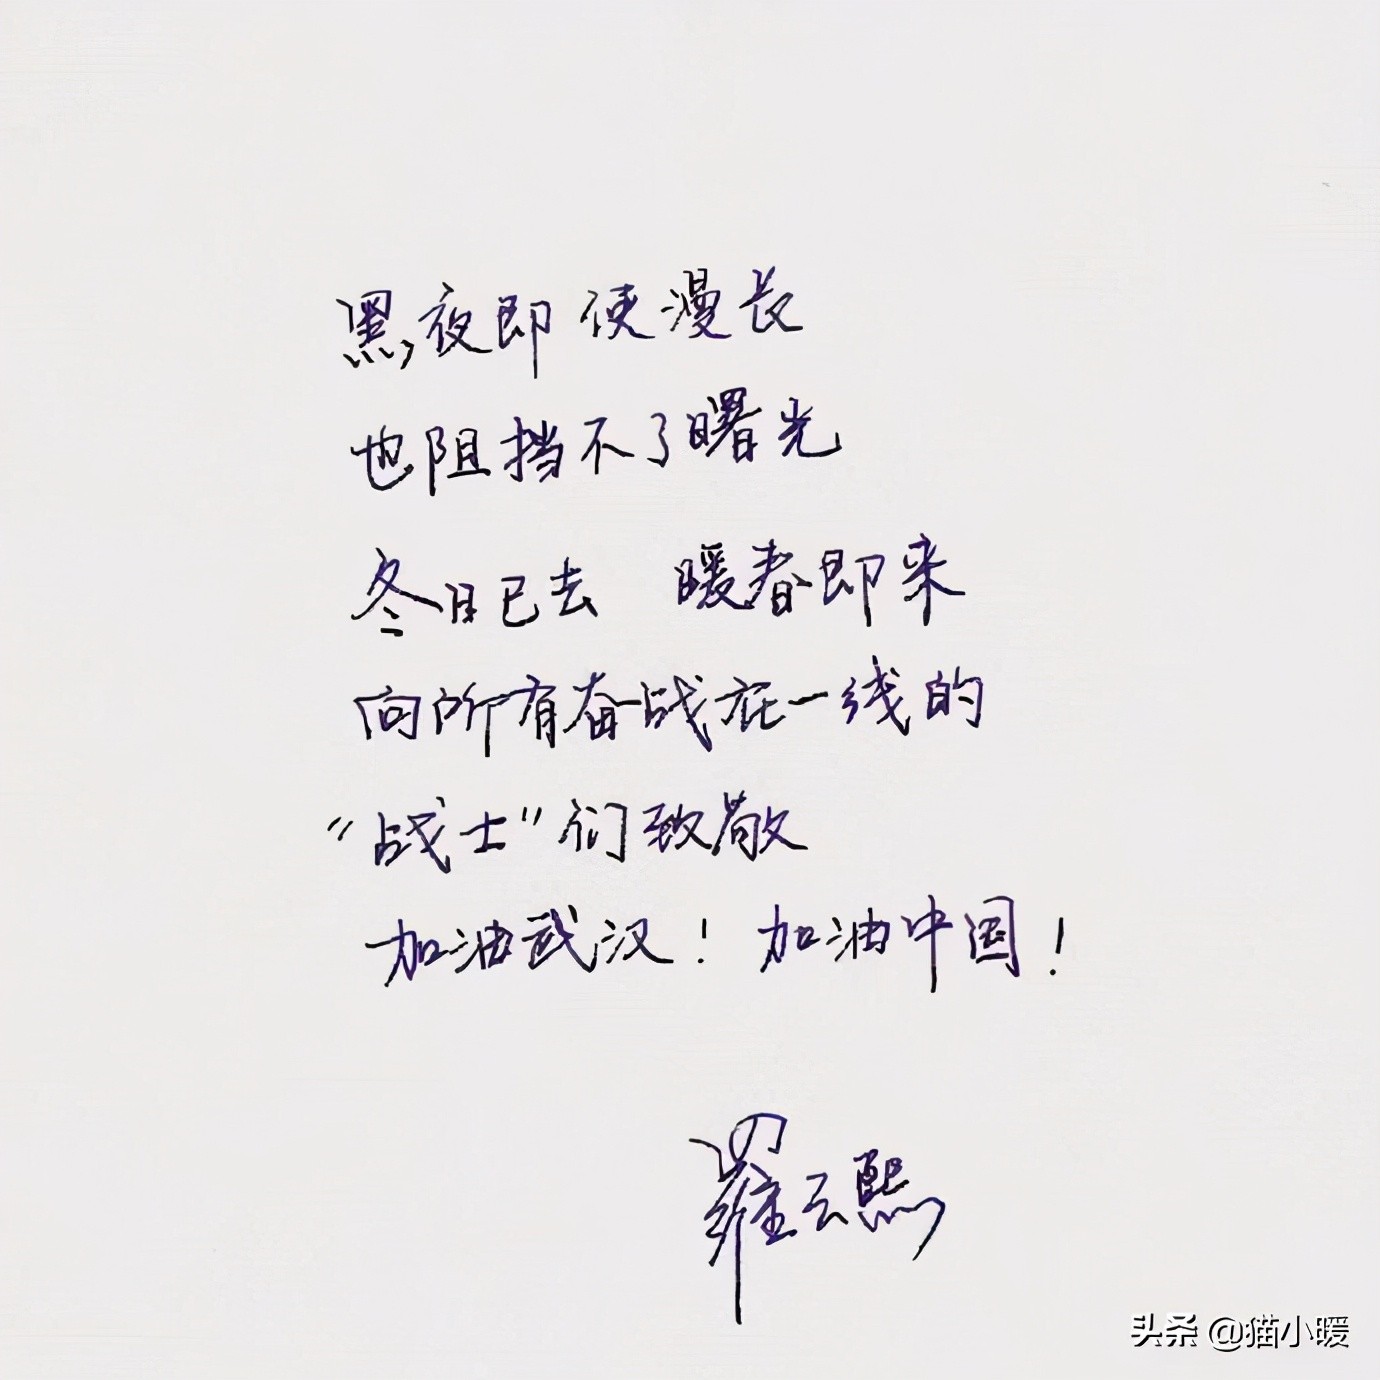 黑夜即使漫长
也阻挡不了曙光
冬日已去 暖春即来
向所有奋战在一线的
“战士”们致敬
加油武汉！加油中国！
羅云熙
头条 @猫小暖